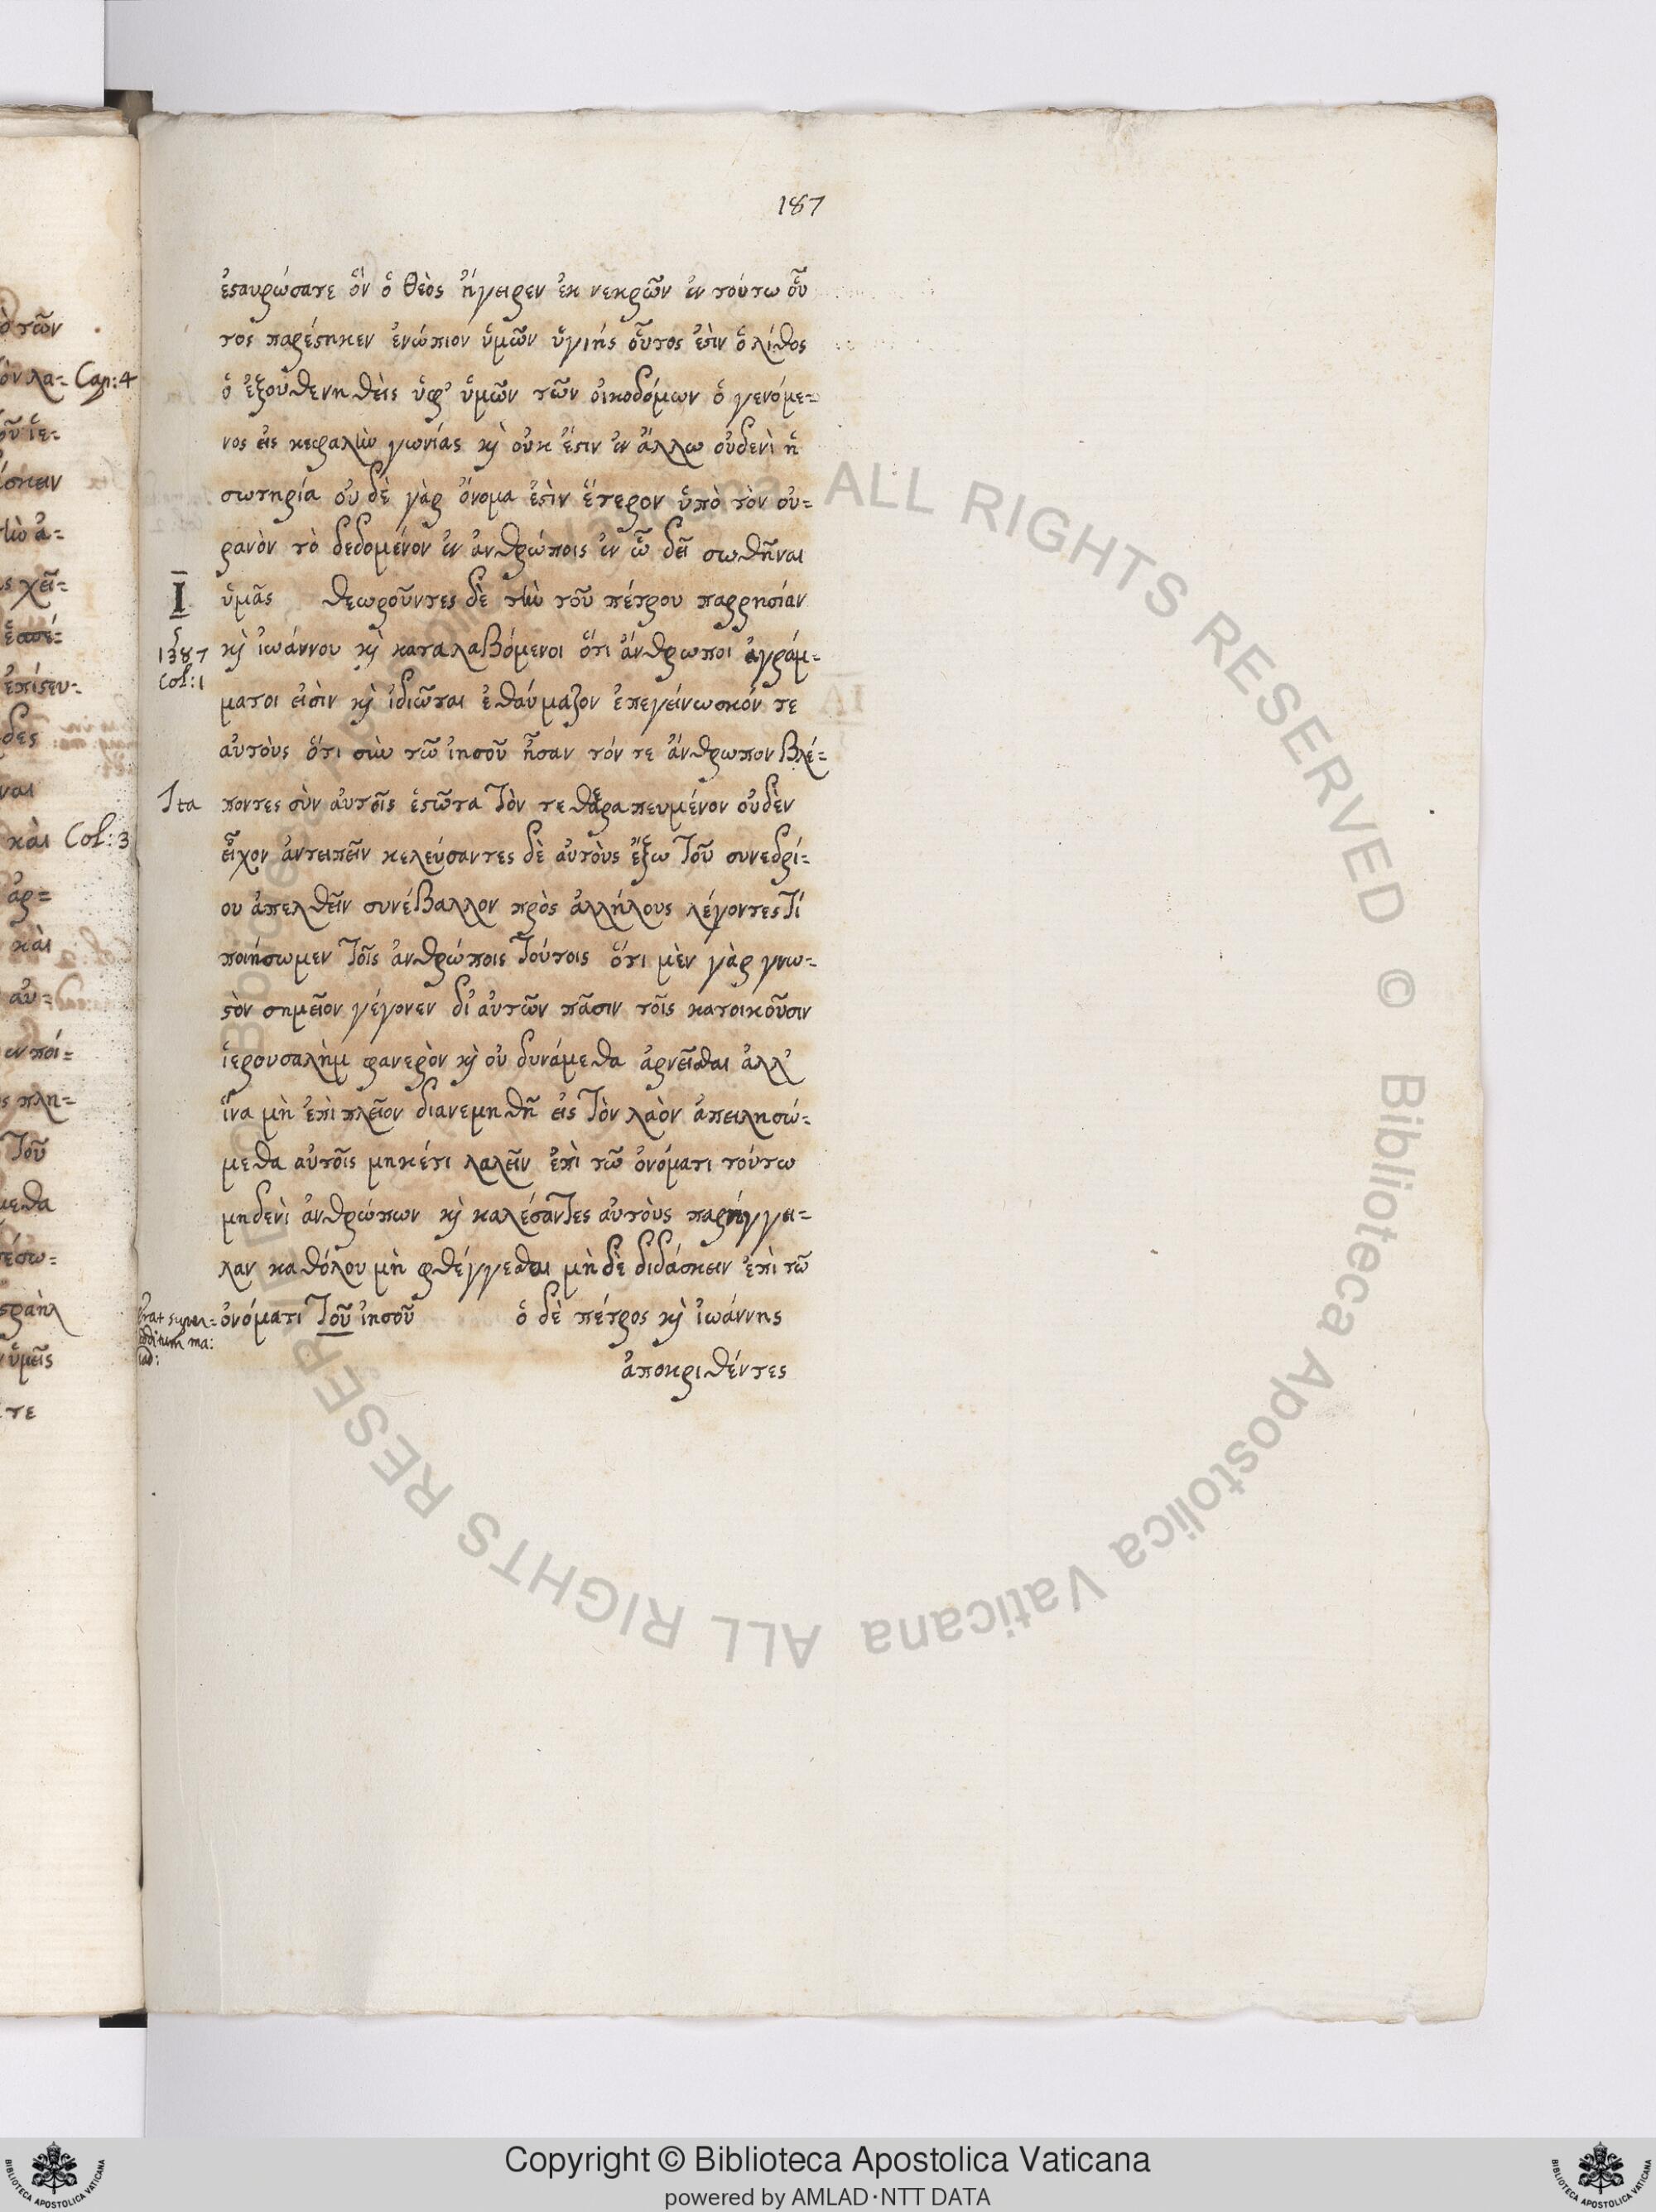 187
ἐσαυρώσατε ὃν ὁ θεὸς ἤγειρεν ἐκ νεκρῶν ἐν τούτω οὗ
τος παρέστηκεν ἐνώπιον ὑμῶν ὑγιής οὗτος ἐστὶν ὁ λίθος
ὁ ἐξουθενηθεὶς ὑφ' ὑμῶν τῶν οἰκοδόμων ὁ γενόμε=
νος εἰς κεφαλὴν γωνίας κὶ οὐκ ἔστιν ἐν ἄλλω οὐδενὶ ἡ
σωτηρία οὐ δὲ γὰρ ὄνομα ἐστὶν ἕτερον ὑπὸ τὸν οὐ=
ρανὸν τὸ δεδομένον ἐν ἀνθρώποις ἐν ᾧ δεῖ σωθῆναι
Ī ὑμᾶς θεωροῦντες δὲ τὴν τοῦ πέτρου παρρησίαν
1387 κὶ ἰωάννου κὶ καταλαβόμενοι ὅτι ἄνθρωποι ἀγράμ=
Col:1
ματοι εἰσὶν κὶ ἰδιῶται ἐθαύμαζον ἐπεγείνωσκόν τε
αὐτοὺς ὅτι σὺν τῶ ἰησοῦ ἦσαν τόν τε ἄνθρωπον βλέ=
Ita ποντες σὺν αὐτοῖς ἑστῶτα τὸν τεθεραπευμένον οὐδὲν
εἶχον ἀντειπεῖν κελεύσαντες δὲ αὐτοὺς ἔξω τοῦ συνεδρί=
ου ἀπελθεῖν συνέβαλλον πρὸς ἀλλήλους λέγοντες τί
ποιήσωμεν τοῖς ἀνθρώποις τούτοις ὅτι μὲν γὰρ γνω=
στὸν σημεῖον γέγονεν δι' αὐτῶν πᾶσιν τοῖς κατοικοῦσιν
ἱερουσαλὴμ φανερὸν κὶ οὐ δυνάμεθα ἀρνεῖσθαι ἀλλ'
ἵνα μὴ ἐπὶ πλεῖον διανεμηθῆ εἰς τὸν λαὸν ἀπειλησώ=
μεθα αὐτοῖς μηκέτι λαλεῖν ἐπὶ τῶ ὀνόματι τούτω
μηδενὶ ἀνθρώπων κὶ καλέσαντες αὐτοὺς παρήγγει=
λαν καθόλου μὴ φθέγγεσθαι μὴ δὲ διδάσκειν ἐπὶ τῶ
ὀνόματι τοῦ ἰησοῦ ὁ δὲ πέτρος κὶ ἰωάννης
ἀποκριθέντες
Cap:4
Col:3
ALL RIGHTS RESERVED © Biblioteca Apostolica Vaticana ALL RIGHTS RESERVED
Copyright © Biblioteca Apostolica Vaticana
powered by AMLAD·NTT DATA
BIBLIOTECA APOSTOLICA VATICANA
BIBLIOTECA APOSTOLICA VATICANA